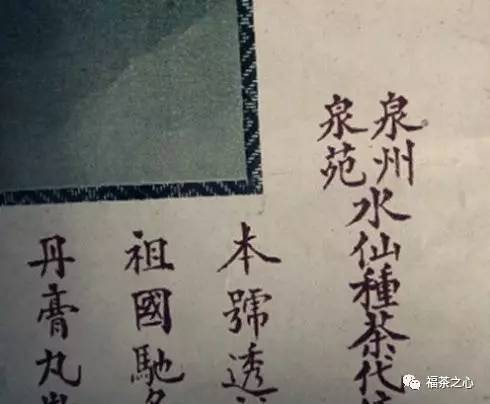 泉州
泉苑
水仙種茶代
本號透
祖國馳名
丹膏丸
福茶之心